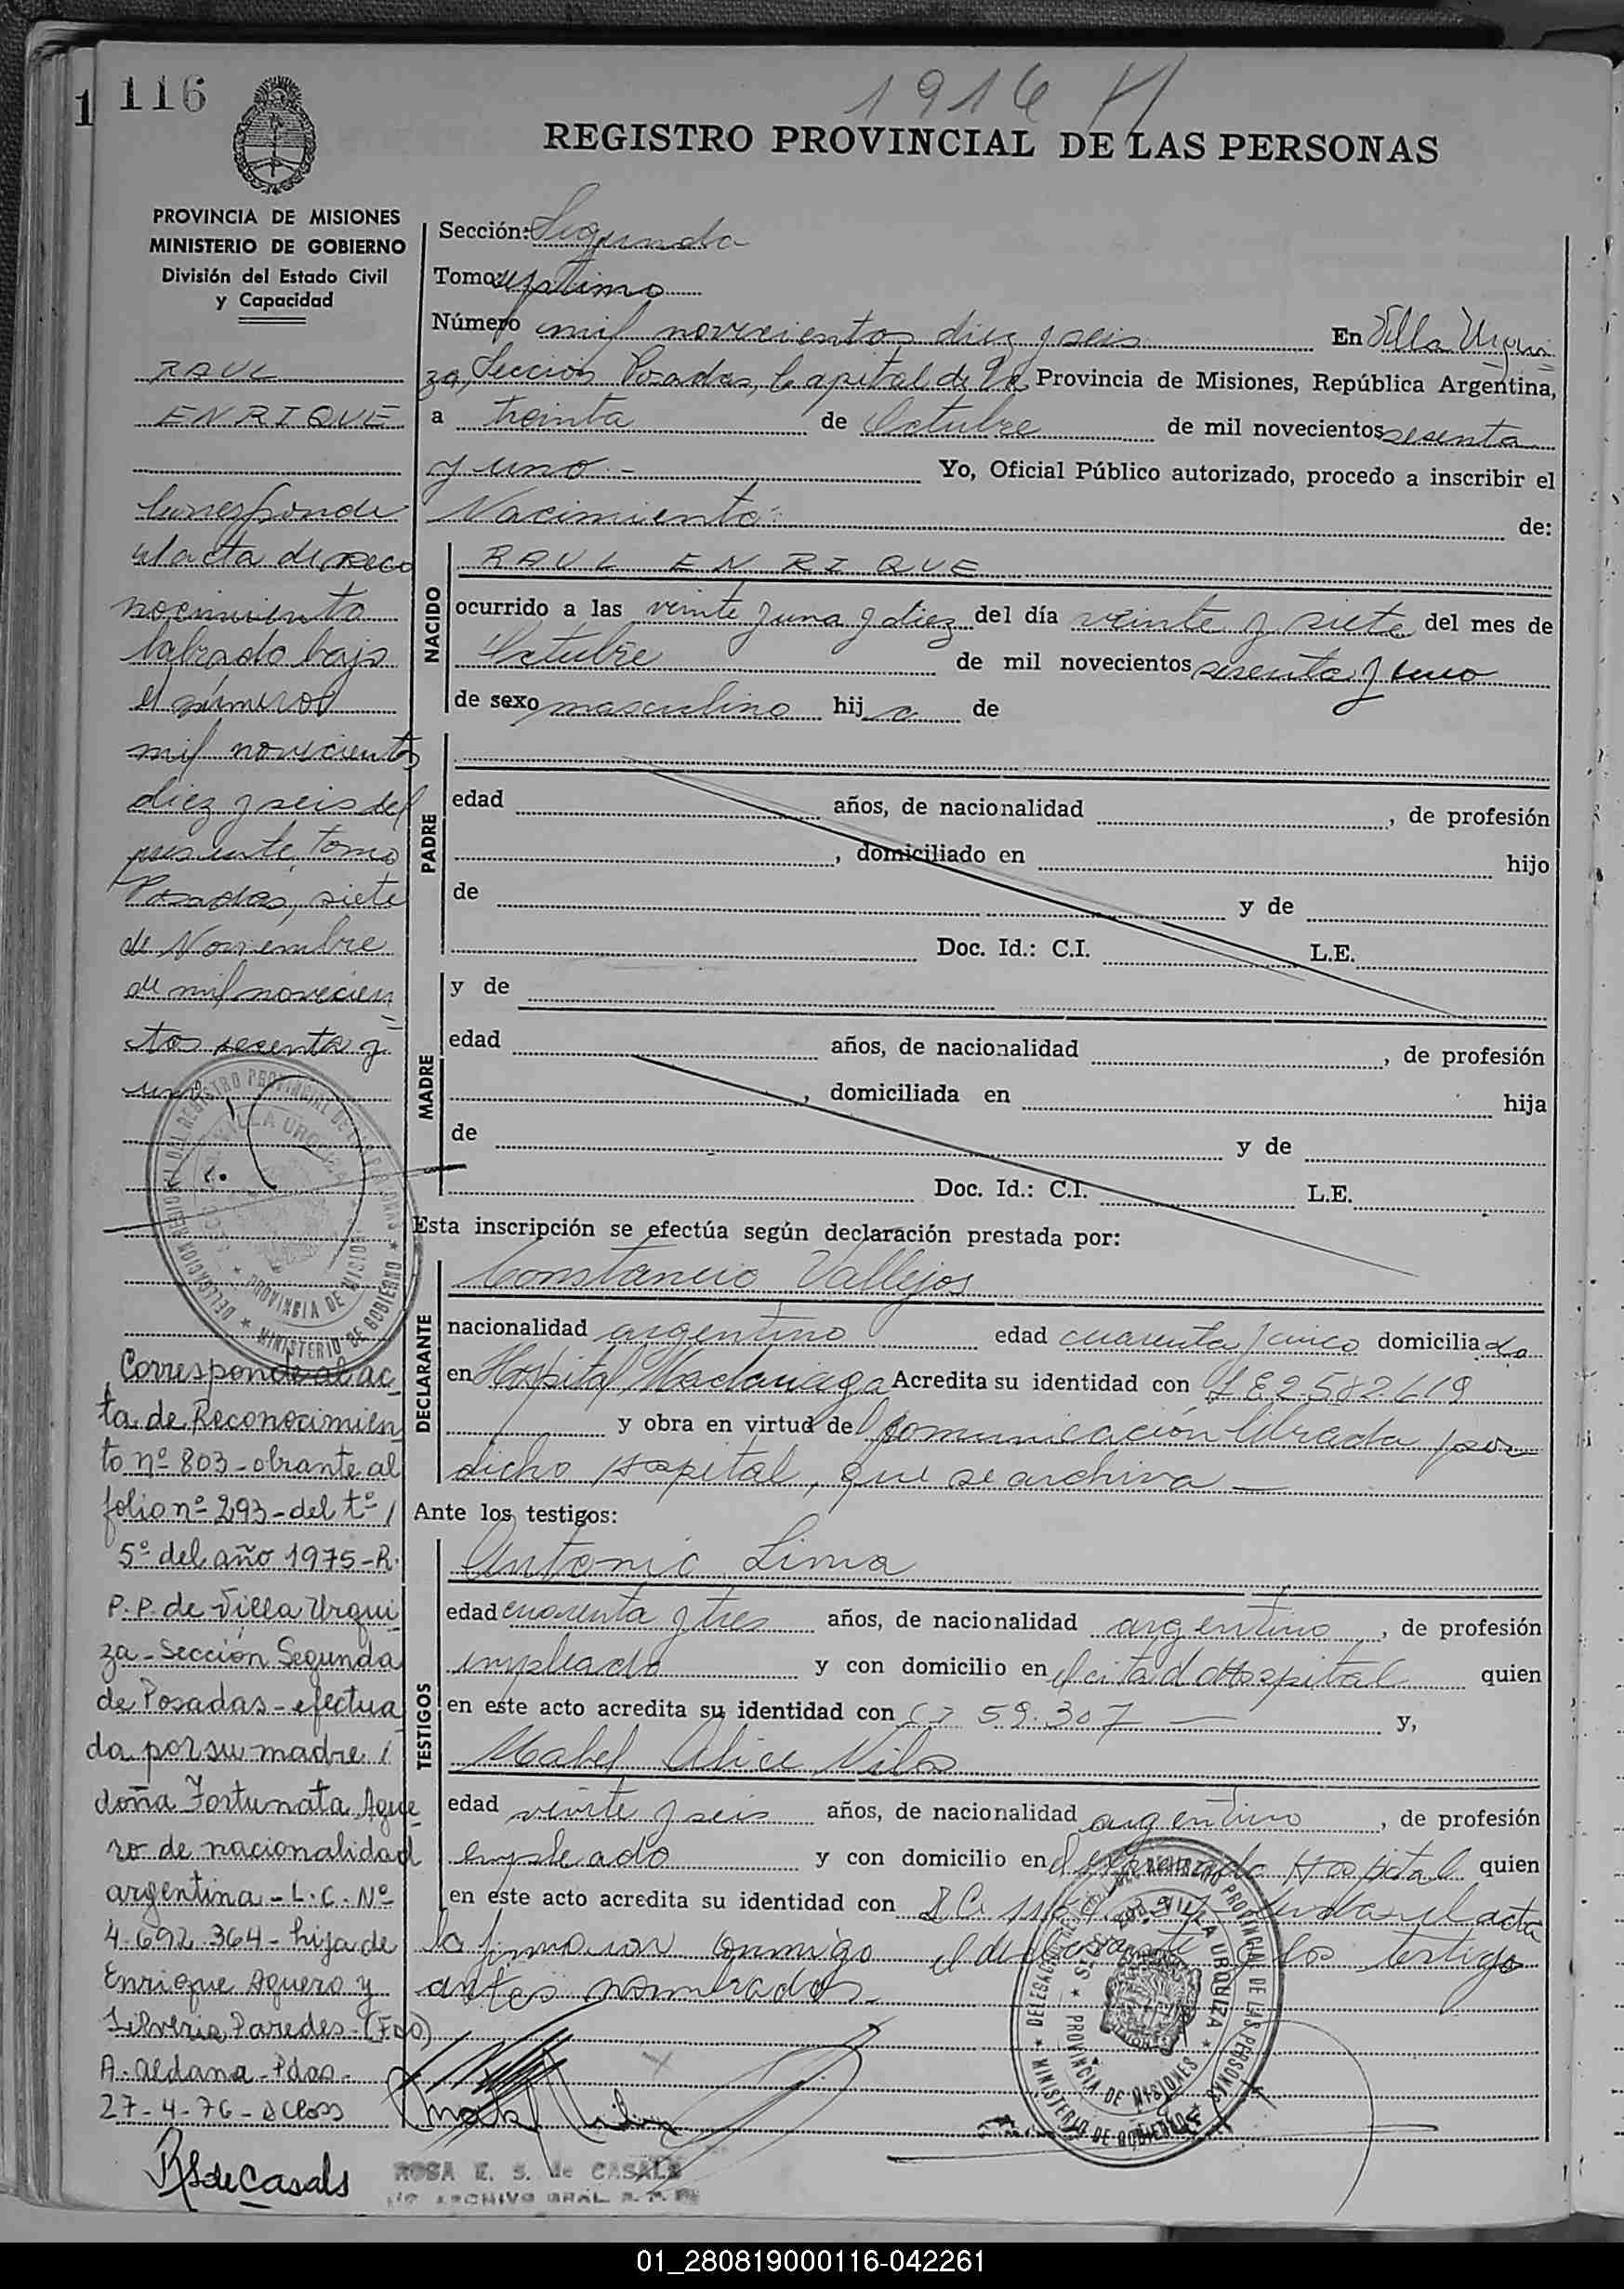 1916
116
REGISTRO PROVINCIAL DE LAS PERSONAS
PROVINCIA DE MISIONES
MINISTERIO DE GOBIERNO
División del Estado Civil
y Capacidad
RAUL
ENRIQUE
Corresponde
al acta de reco
nocimiento
labrado bajo
el número
mil novecientos
diez y seis del
presente tomo
Posadas, siete
de Noviembre
de mil novecien
tos sesenta y
uno
Corresponde al ac
ta de Reconocimien
to nº 803 - obrante al
folio nº 293 - del tº /
5º del año 1975 - R.
P. P. de Villa Urqui
za - Sección Segunda
de Posadas - efectua
da por su madre /
doña Fortunata Ague
ro de nacionalidad
argentina - L. C. Nº
4.692.364 - hija de
Enrique Aguero y
Silveria Paredes - (Fdo)
A. Aldana - Pdas -
27-4-76 -
RSdeCasals
Sección: Segunda
Tomo septimo
Número mil novecientos diez y seis En Villa Urqui
za, Sección Posadas, Capital de la Provincia de Misiones, República Argentina,
a treinta de Octubre de mil novecientos sesenta
y uno.- Yo, Oficial Público autorizado, procedo a inscribir el
Nacimiento de:
NACIDO
RAUL ENRIQUE
ocurrido a las veinte y una y diez del día veinte y siete del mes de
Octubre de mil novecientos sesenta y uno
de sexo masculino hijo de
PADRE
edad años, de nacionalidad , de profesión
, domiciliado en hijo
de y de
Doc. Id.: C.I. L.E.
MADRE
y de
edad años, de nacionalidad , de profesión
, domiciliada en hija
de y de
Doc. Id.: C.I. L.E.
Esta inscripción se efectúa según declaración prestada por:
DECLARANTE
Constancio Vallejos
nacionalidad argentino edad cuarenta y cinco domiciliado
en Hospital Madariaga Acredita su identidad con LE 2582619
y obra en virtud del comunicación librada por
dicho Hospital, que se archiva -
Ante los testigos:
TESTIGOS
Antonio Lima
edad cuarenta y tres años, de nacionalidad argentino, de profesión
empleado y con domicilio en el citado Hospital quien
en este acto acredita su identidad con CI 59.307 - y,
Mabel Alice
edad veinte y seis años, de nacionalidad argentino, de profesión
empleado y con domicilio en el Hospital quien
en este acto acredita su identidad con acta
la firmaron conmigo el declarante y los testigo
antes nombrados.-
DELEGACION REGIONAL DEL REGISTRO PROVINCIAL DE LAS PERSONAS
VILLA URQUIZA
PROVINCIA DE MISIONES
MINISTERIO DE GOBIERNO
ROSA E. S. de CASALS
ARCHIVO GRAL. R. P.
01_280819000116-042261